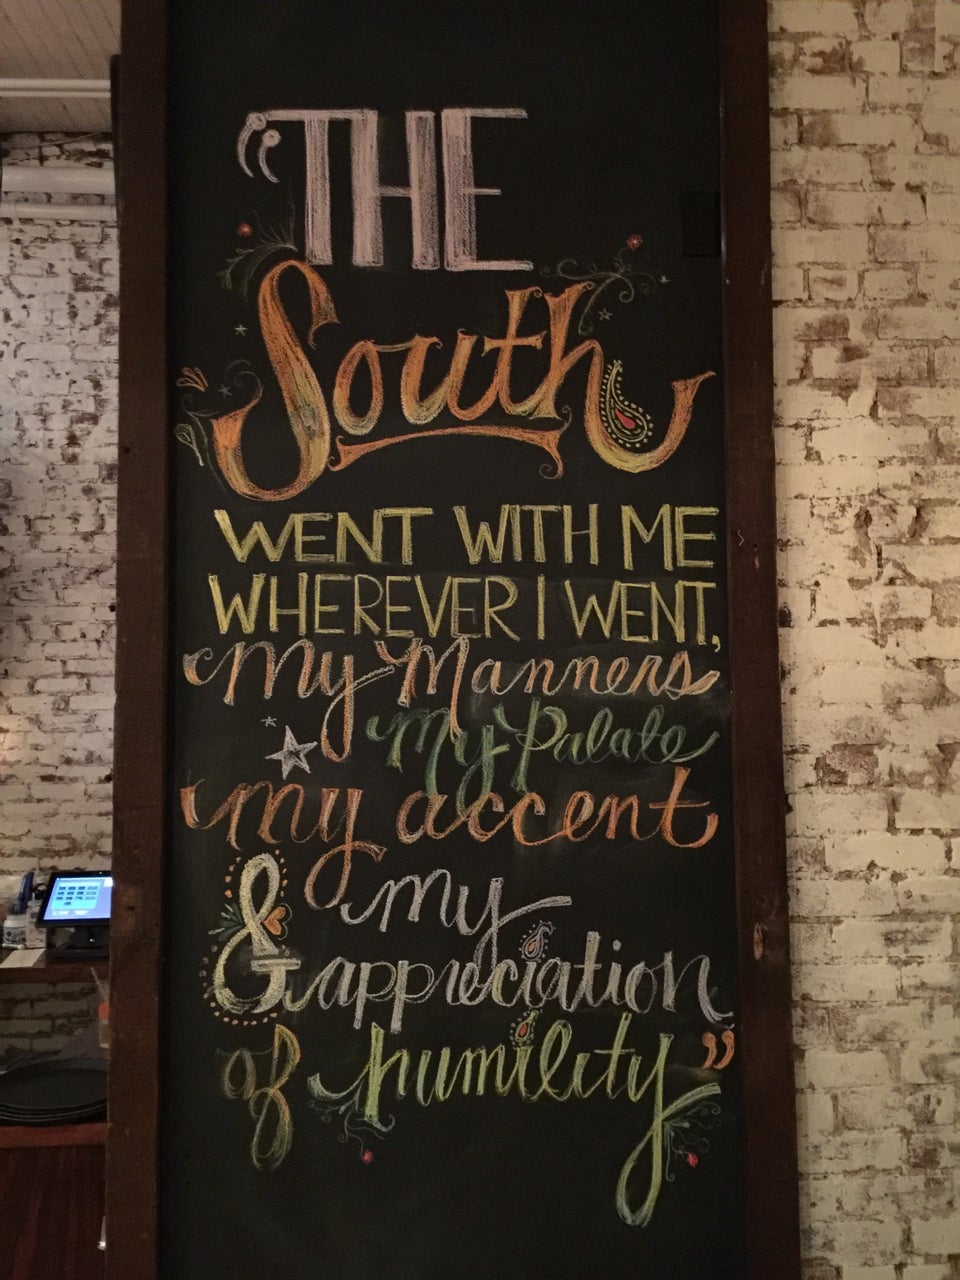 “THE
South
WENT WITH ME
WHEREVER I WENT,
my Manners
my Palate
my accent
& my
appreciation
of humility”